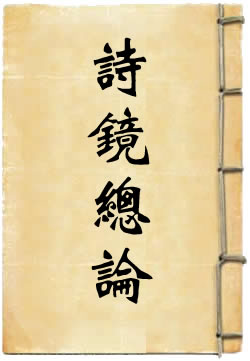 詩鏡總論